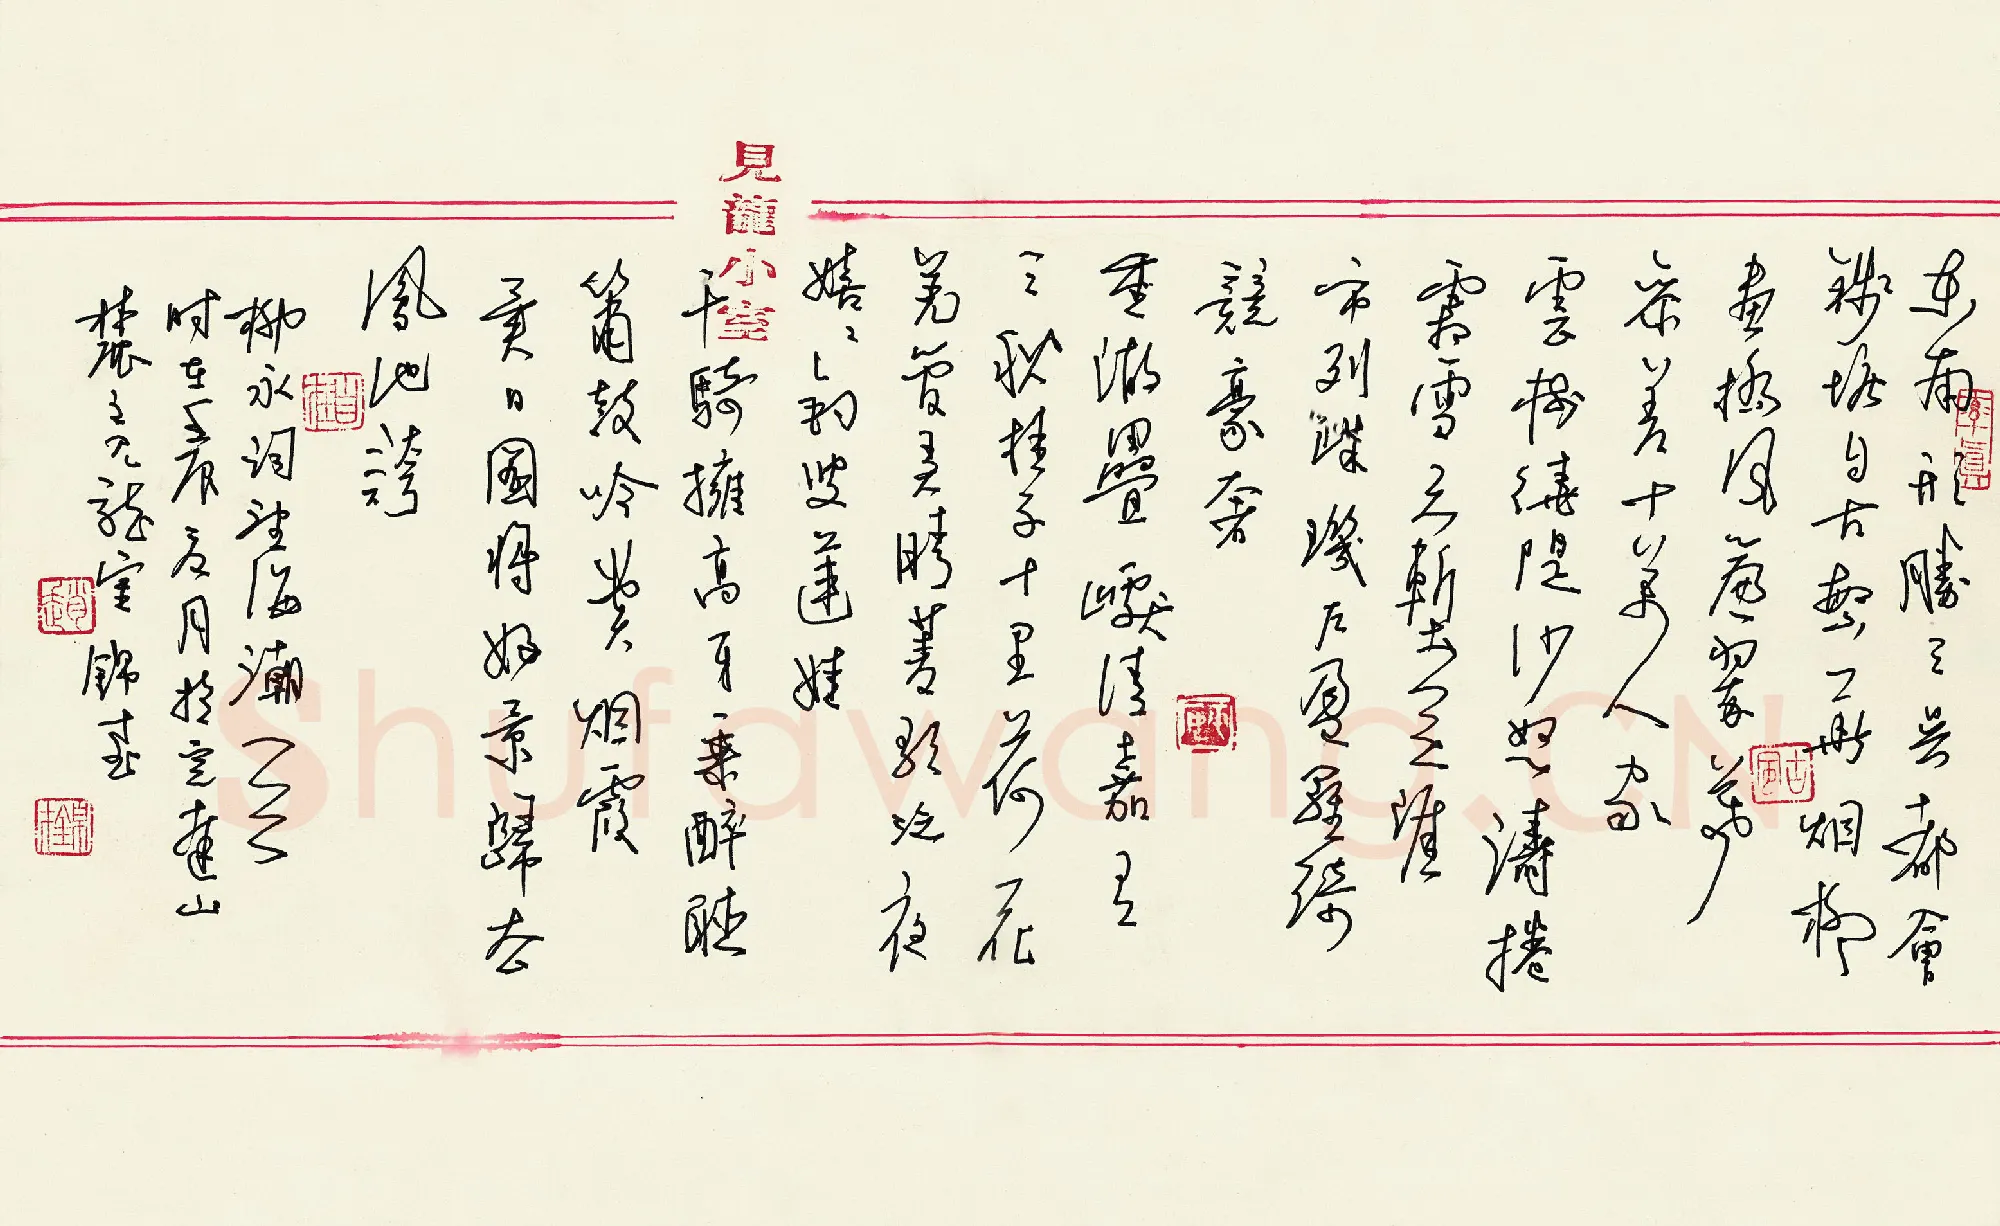 東南形勝三吳都會
錢塘自古繁華烟柳
畫橋風簾翠幕
參差十萬人家
雲樹繞隄沙怒濤捲
霜雪天塹無涯
市列珠璣户盈羅綺
競豪奢
重湖疊巘清嘉有
三秋桂子十里荷花
羌管弄晴菱歌泛夜
嬉嬉釣叟蓮娃
千騎擁高牙乘醉聽
簫鼓吟賞烟霞
異日圖將好景歸去
鳳池誇
柳永詞望海潮
时在壬辰夏月於定蓮山
龍室錦
見龍小室
Shufawang.CN